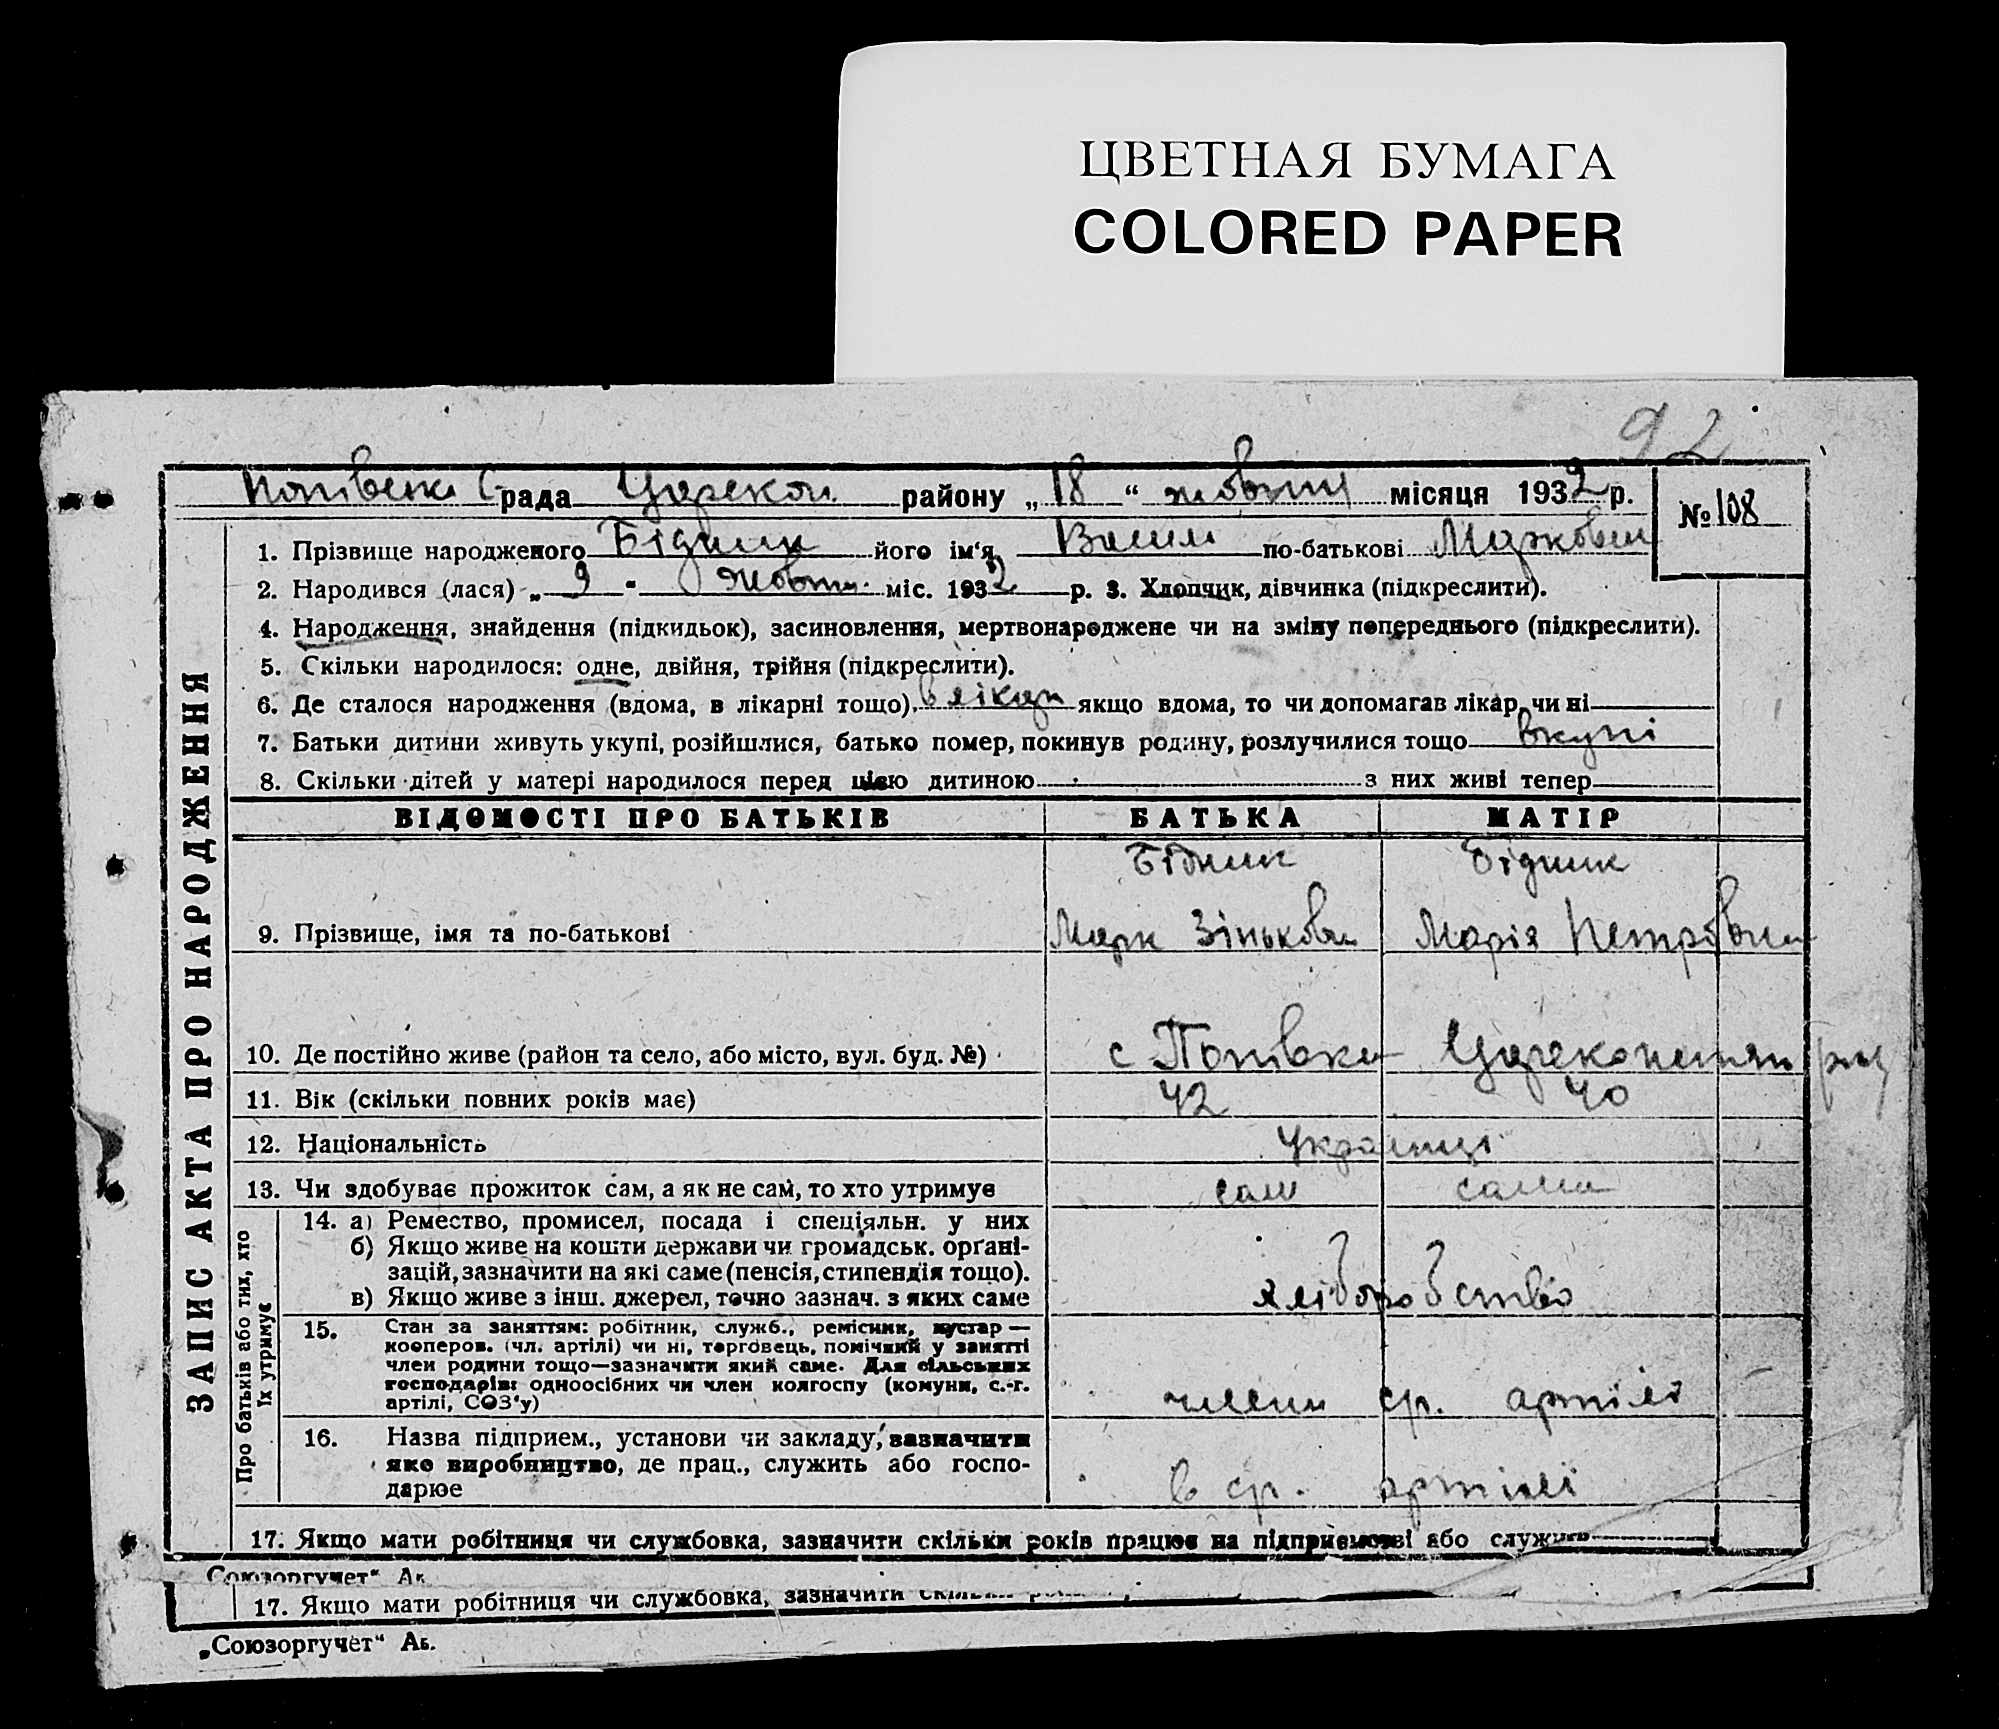 ЦВЕТНАЯ БУМАГА
COLORED PAPER
92
Попівська С рада Царекон району „ 18 “ жовтня місяця 1932 р.
№ 108
1. Прізвище народженого Бідник його ім‘я по-батькові Маркович
2. Народився (лася) „ 9 “ Жовтн. міс. 1932 р. 3. Хлопчик, дівчинка (підкреслити).
4. Народження, знайдення (підкидьок), засиновлення, мертвонароджене чи на зміну попереднього (підкреслити).
5. Скільки народилося: одне, двійня, трійня (підкреслити).
6. Де сталося народження (вдома, в лікарні тощо), в лікар якщо вдома, то чи допомагав лікар, чи ні
7. Батьки дитини живуть укупі, розійшлися, батько помер, покинув родину, розлучилися тощо вкупі
8. Скільки дітей у матері народилося перед цією дитиною з них живі тепер
ЗАПИС АКТА ПРО НАРОДЖЕННЯ
ВІДОМОСТІ ПРО БАТЬКІВ БАТЬКА МАТІР
Бідник Бідник
9. Прізвище, імя та по-батькові Марк Зінькович Марія Петрівна
10. Де постійно живе (район та село, або місто, вул. буд. №) с Попівка
11. Вік (скільки повних років має) 42 40
12. Національність Українці
13. Чи здобуває прожиток сам, а як не сам, то хто утримує сам сама
Про батьків або тих, хто
їх утримує
14. а) Ремество, промисел, посада і спеціяльн. у них
б) Якщо живе на кошти держави чи громадськ. орґані-
зацій, зазначити на які саме (пенсія, стипендія тощо).
в) Якщо живе з інш. джерел, точно зазнач. з яких саме хліборобство
15. Стан за заняттям: робітник, служб., ремісник, кустар —
кооперов. (чл. артілі) чи ні, торговець, помічний у занятті
член родини тощо—зазначити який саме. Для сільських
господарів: одноосібних чи член колгоспу (комуни, с.-г.
артілі, СОЗ'у) члени ср. артілі
16. Назва підприєм., установи чи закладу, зазначити
яке виробництво, де прац., служить або госпо-
дарює в ср. артілі
17. Якщо мати робітниця чи службовка, зазначити скільки років працює на підприємстві або служить
Союзоргучет“ Ак
17. Якщо мати робітниця чи службовка, зазначити скільки
„Союзоргучет“ Аб.